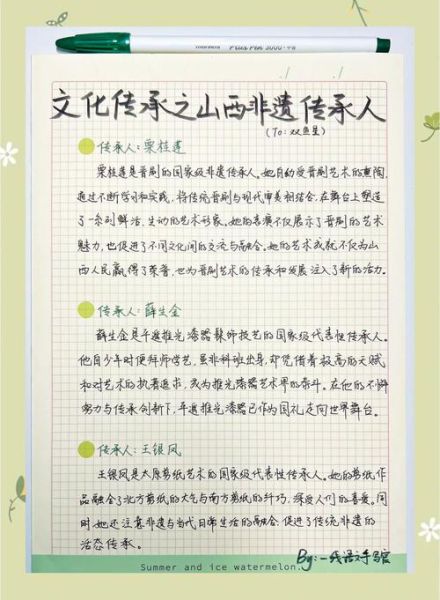 Plus Pen 3000
文化传承之山西非遗传承人
(To: 双鱼星)
传承人:栗桂莲
栗桂莲是晋剧的国家级非遗传承人。她自幼受晋剧艺术的熏陶,
通过不断学习和实践,将传统晋剧与现代审美相结合,在舞台上塑造
了一系列鲜活、生动的艺术形象。她的表演不仅展示了晋剧的艺术
魅力,也促进了不同文化间的交流与融合。她的艺术成就不仅为山
西人民赢得了荣誉,也为晋剧艺术的传承和发展注入了新的活力。
传承人:薛生金
薛生金是平遥推光漆器髹饰技艺的国家级代表性传承人。
他自少年时便拜师学艺,虽非科班出身,却凭借着极高的天赋
和对艺术的执着追求,成为推光漆器艺术界的泰斗。在他的不懈
努力与传承创新下,平遥推光漆器已作为国礼走向世界舞台。
传承人:王银凤
王银凤是太原剪纸艺术的国家级代表性传承人。她的剪纸作
品融合了北方剪纸的大气与南方剪纸的纤巧,深受人们的喜爱。同
时,她还注意非遗与当代日常生活的融合,促进了传统非遗的
活态传承。
By:一线语手写官
Summer and ice watermelon.